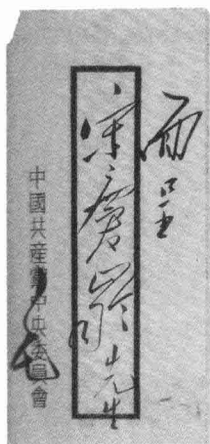 面呈
宋庆龄先生
中國共産黨中央委員會